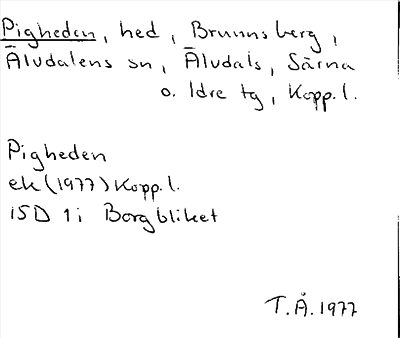 Pigheden, hed, Brunnsberg,
Älvdalens sn, Älvdals, Särna
o. Idre tg, Kopp. l.
Pigheden
ek (1977) Kopp. l.
15D 1i Borgbliket
T.Å. 1977